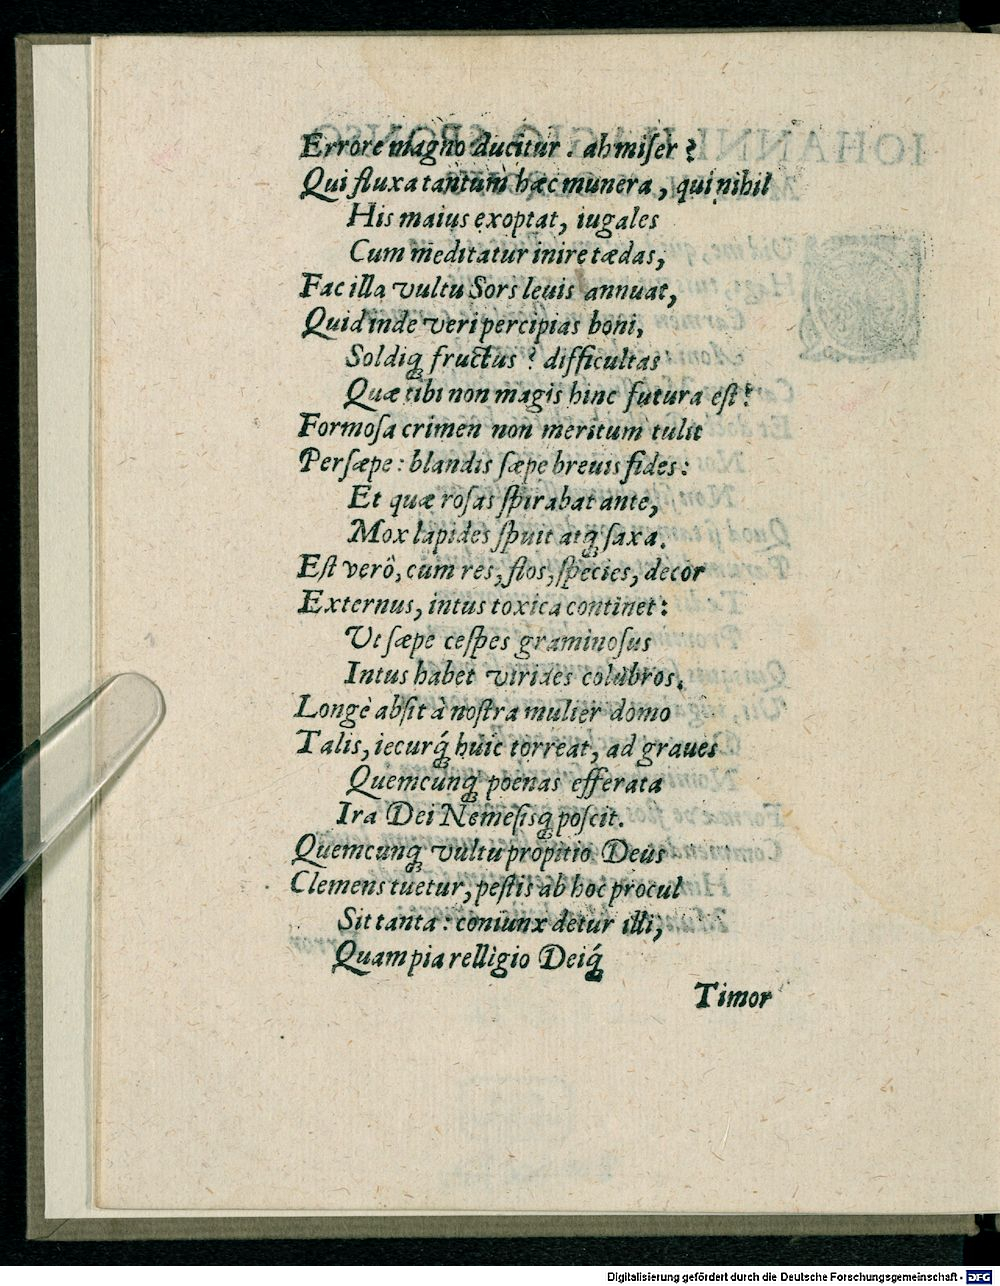 Errore magno ducitur. ah miſer?
Qui fluxa tantum hæc munera, qui nihil
His maius exoptat, iugales
Cum meditatur inire tædas,
Fac illa vultu Sors leuis annuat,
Quid inde veri percipias boni,
Soldiq́ fructus? difficultas
Quæ tibi non magis hinc futura eſt?
Formoſa crimen non meritum tulit
Perſæpe: blandis ſæpe breuis fides:
Et quæ roſas ſpirabat ante,
Mox lapides ſpuit atq́ ſaxa.
Eſt verò, cum res, flos, ſpecies, decor
Externus, intus toxica continet:
Vt ſæpe ceſpes graminoſus
Intus habet virides colubros.
Longè abſit à noſtra mulier domo
Talis, iecurq́ huic torreat, ad graues
Quemcunq́ poenas efferata
Ira Dei Nemeſisq́ poſcit.
Quemcunq́ vultu propitio Deus
Clemens tuetur, peſtis ab hoc procul
Sit tanta: coniunx detur illi,
Quam pia relligio Deiq́
Timor
Digitalisierung gefördert durch die Deutsche Forschungsgemeinschaft - DFG